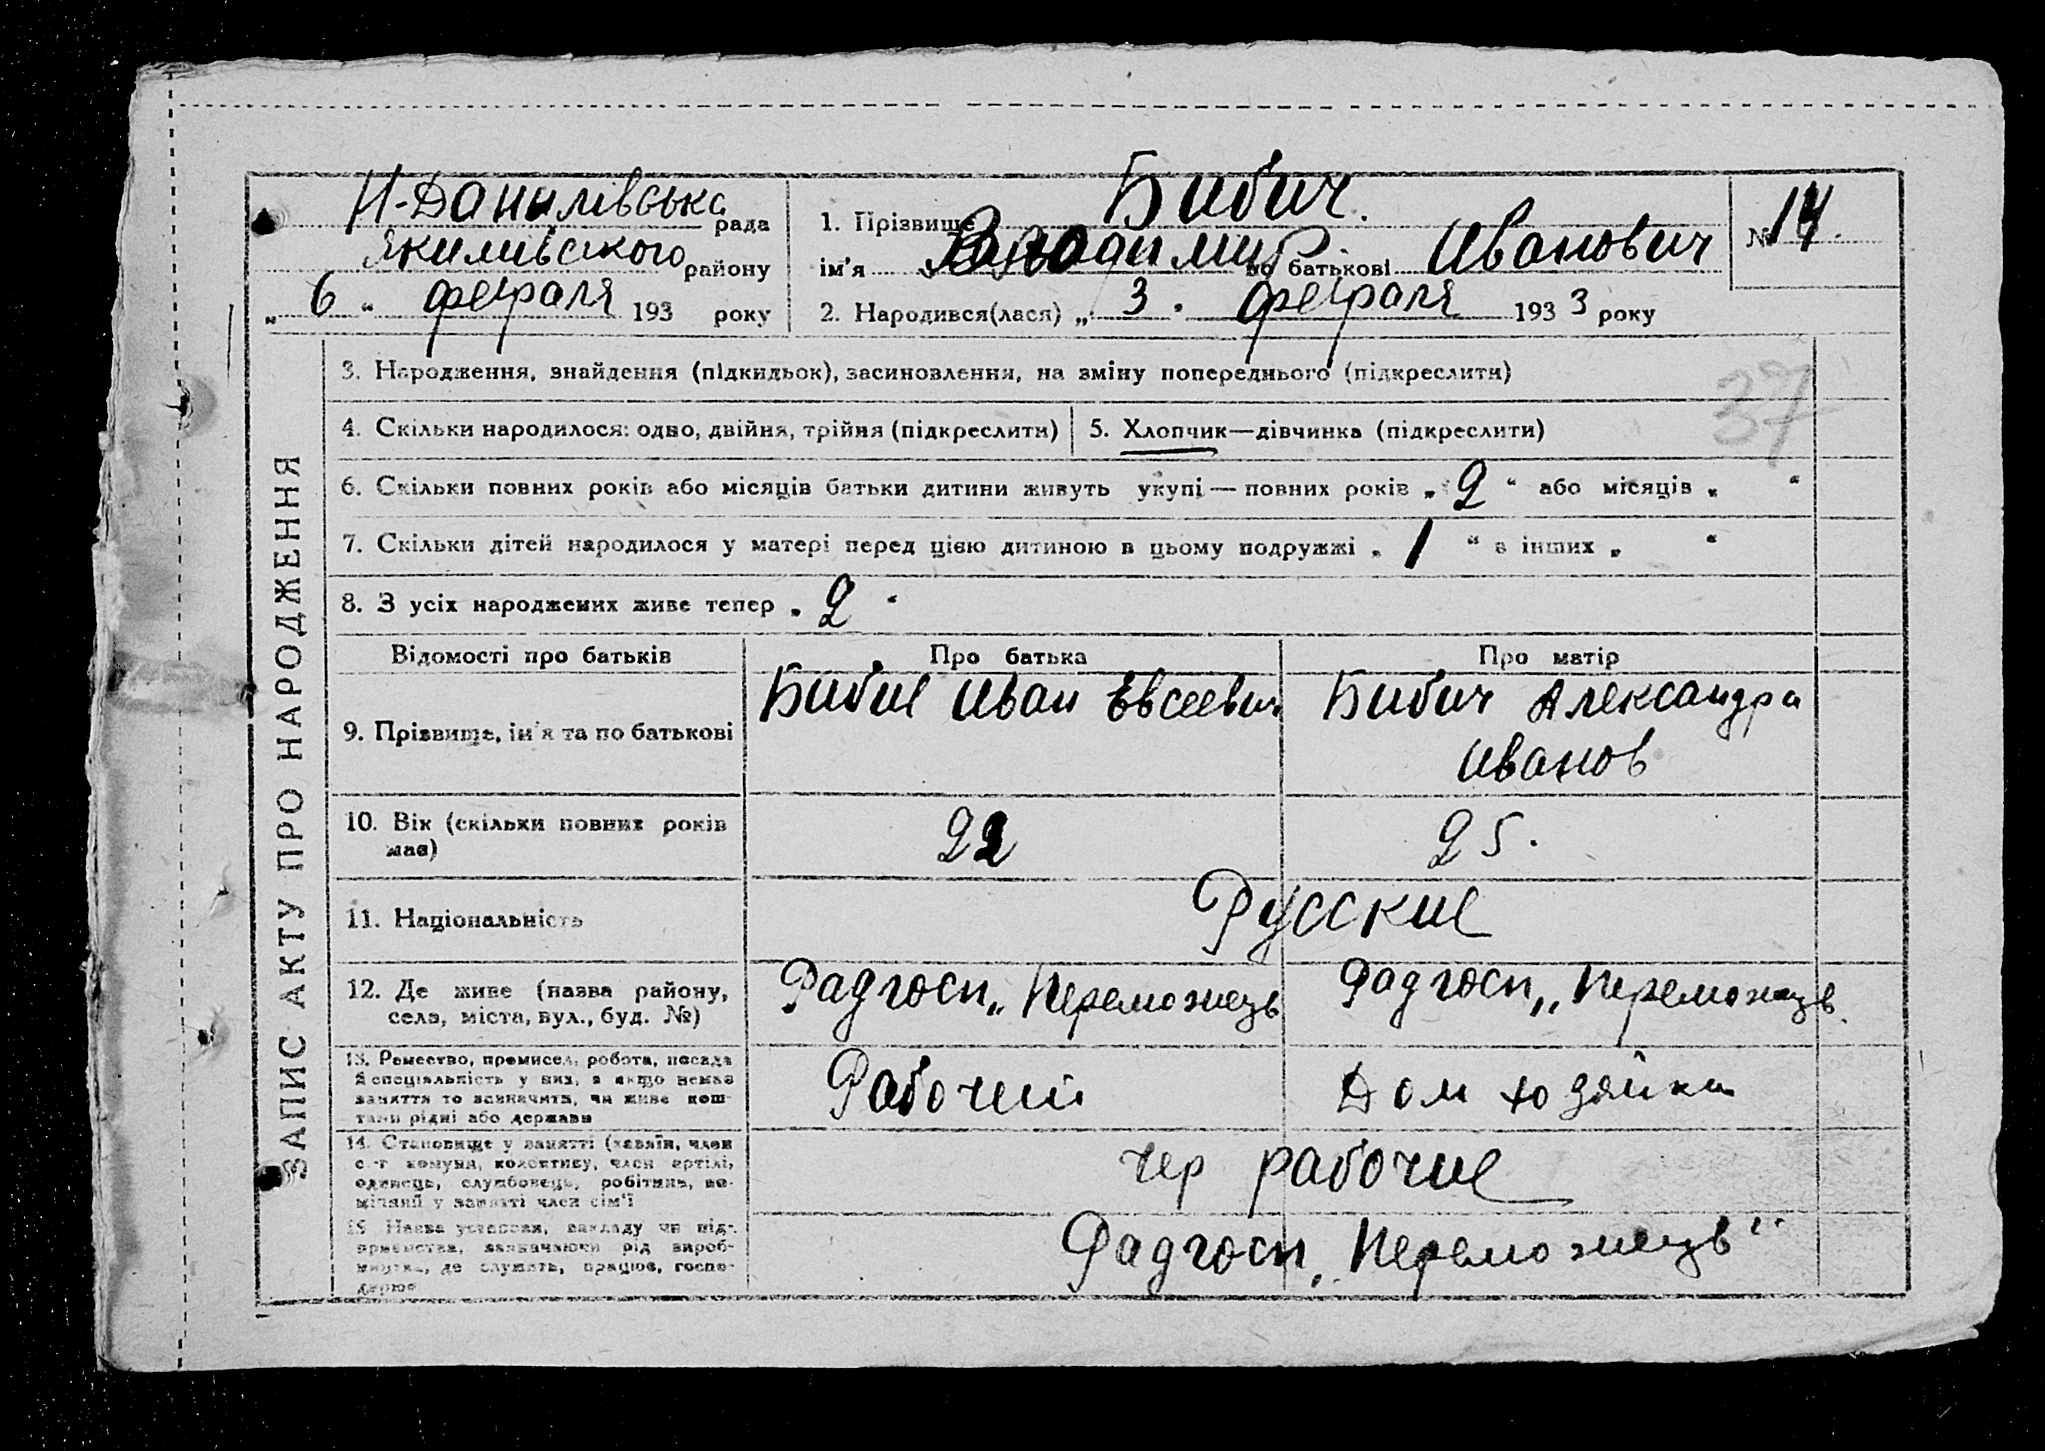 Н-Данилівська рада
Якимівського району
„ 6 “ февраля 193 року
1. Прізвище Бибич.
ім'я Володимир по батькові Иванович
2. Народився(лася) „ 3 “ февраля 1933 року
№ 14.
37
ЗАПИС АКТУ ПРО НАРОДЖЕННЯ
3. Народження, знайдення (підкидьок), засиновлення, на зміну попереднього (підкреслити)
4. Скільки народилося: одно, двійня, трійня (підкреслити)
5. Хлопчик—дівчинка (підкреслити)
6. Скільки повних років або місяців батьки дитини живуть укупі — повних років „ 2 “ або місяців „ “
7. Скільки дітей народилося у матері перед цією дитиною в цьому подружжі „ 1 “ в інших „ “
8. З усіх народжених живе тепер „ 2 “
Відомості про батьків
Про батька
Про матір
9. Прізвище, ім'я та по батькові
Бибич Иван Евсеевич
Бибич Александра
Иванов
10. Вік (скільки повних років
має)
22
25.
11. Національність
Русские
12. Де живе (назва району,
села, міста, вул., буд. №)
Радгосп „Переможець
Радгосп „Переможець
13. Ремество, промисел, робота, посада
й спеціяльність у них, а якщо немає
заняття то зазначити, чи живе кош-
тами рідні або держави
Рабочий
Дом хозяйка
14. Становище у занятті (хазяїн, член
с-г комуни, колективу, член артілі,
одинець, службовець, робітник, по-
мічний у занятті член сім'ї
чер рабочие
15 Назва установи, закладу чи під-
приємства, зазначаючи рід вироб-
ництва, де служить, працює, госпо-
дарює
Радгосп „Переможець“